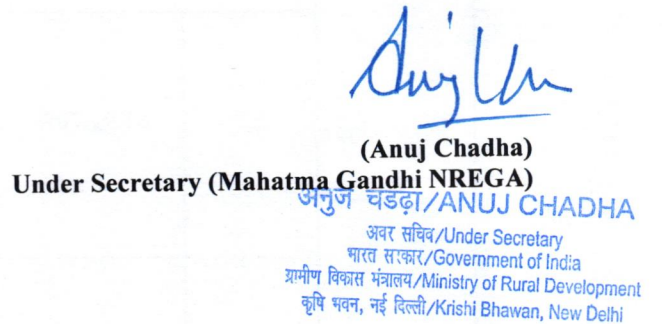 (Anuj Chadha)
Under Secretary (Mahatma Gandhi NREGA)
अनुज चडढ़ा/ANUJ CHADHA
अवर सचिव/Under Secretary
भारत सरकार/Government of India
ग्रामीण विकास मंत्रालय/Ministry of Rural Development
कृषि भवन, नई दिल्ली/Krishi Bhawan, New Delhi